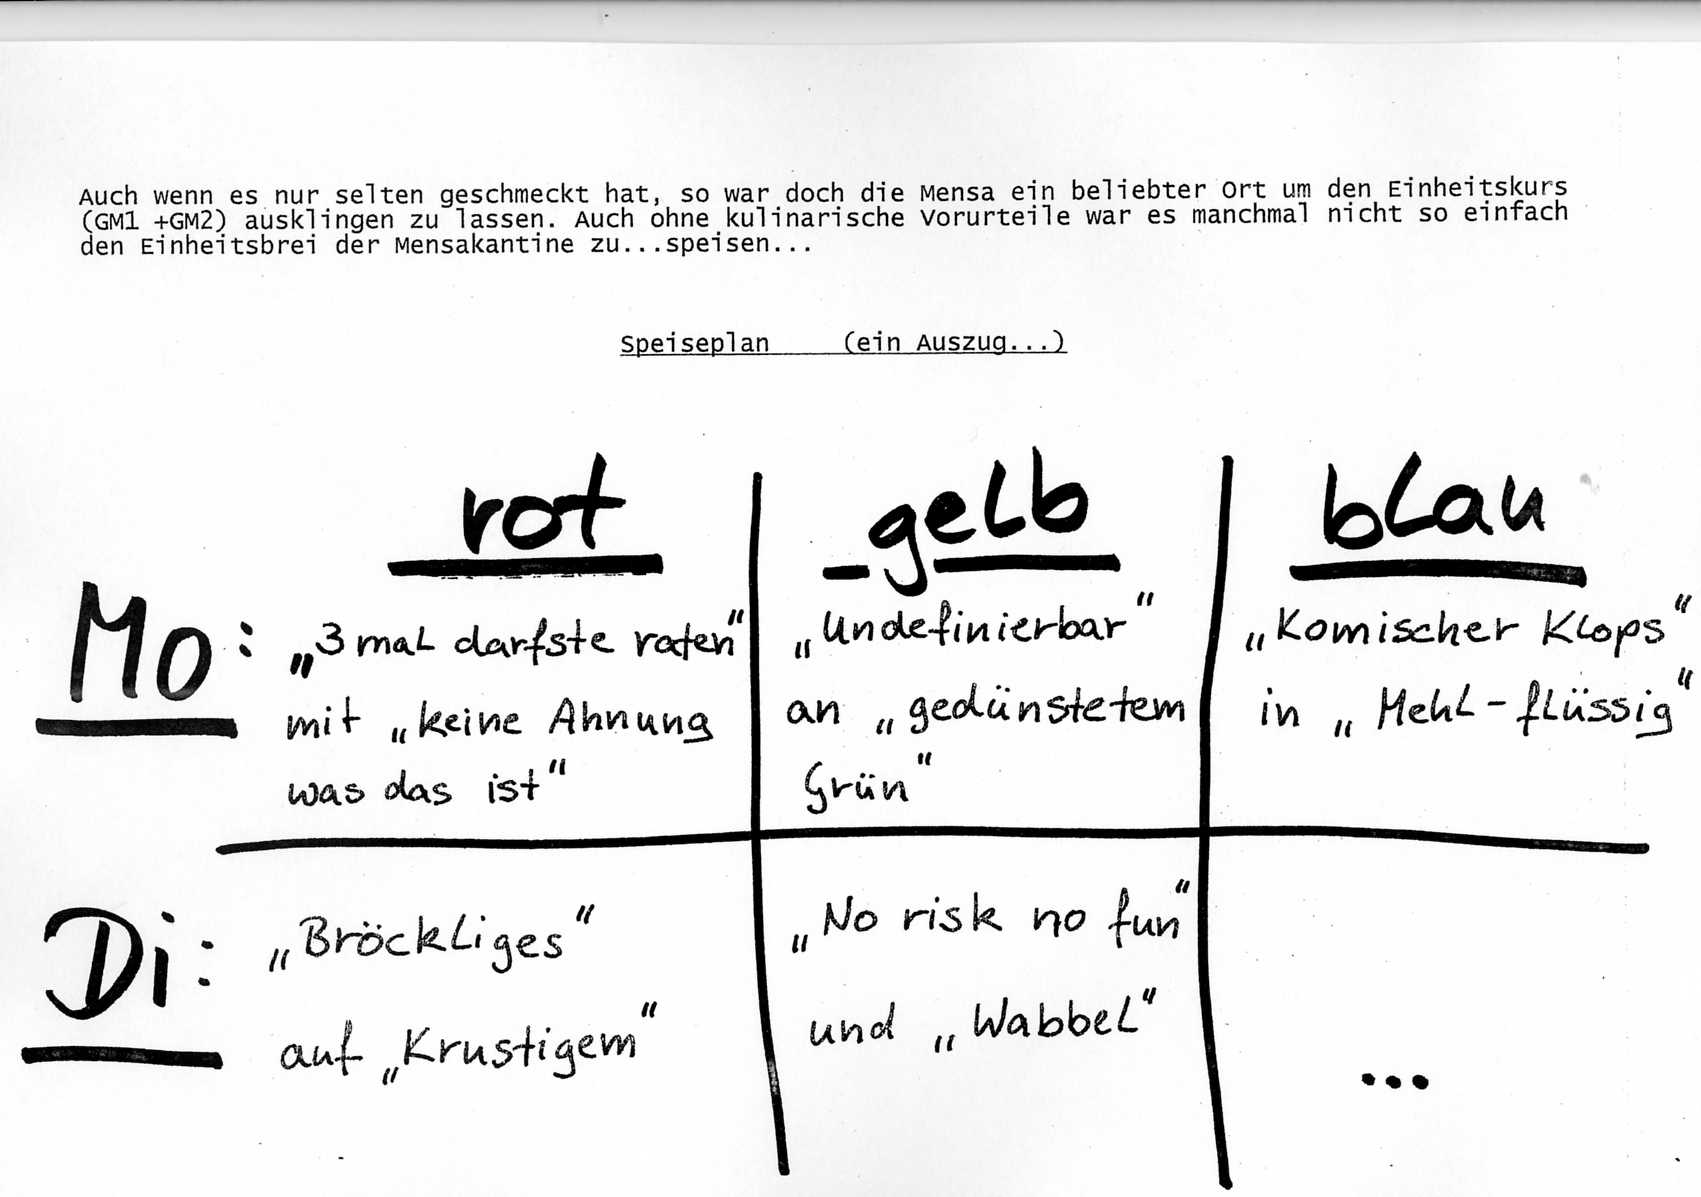 Auch wenn es nur selten geschmeckt hat, so war doch die Mensa ein beliebter Ort um den Einheitskurs
(GM1 +GM2) ausklingen zu lassen. Auch ohne kulinarische Vorurteile war es manchmal nicht so einfach
den Einheitsbrei der Mensakantine zu...speisen...
Speiseplan (ein Auszug...)
rot gelb blau
Mo:
„3 mal darfste raten“
mit „keine Ahnung
was das ist“
„Undefinierbar“
an „gedünstetem
Grün“
„Komischer Klops“
in „Mehl-flüssig“
Di:
„Bröckliges“
auf „Krustigem“
„No risk no fun“
und „Wabbel“
...